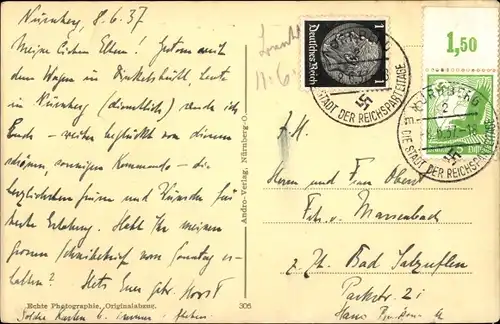 Nürnberg, 8.6.37
Meine lieben Eltern! Gestern mit
dem Wagen in Dinkelsbühl, heute
in Nürnberg (dienstlich) sende ich
Euch – weiter beglückt von diesem
schönen, sonnigen Kommando – die
herzlichsten Grüsse und Wünsche für
Eure Erholung. Habt Ihr meinen
grossen Schreibebrief vom Sonntag er-
halten? Stets Euer gtr. Horst
Echte Photographie, Originalabzug.
305
Andro-Verlag, Nürnberg-O.
Deutsches Reich
1
1
1,50
NÜRNBERG
STADT DER REICHSPARTEITAGE
NÜRNBERG
2
DIE STADT DER REICHSPARTEITAGE
Herrn und Frau Oberst
Frh. v.
z. Zt. Bad Salzuflen
Parkstr. 2
Haus